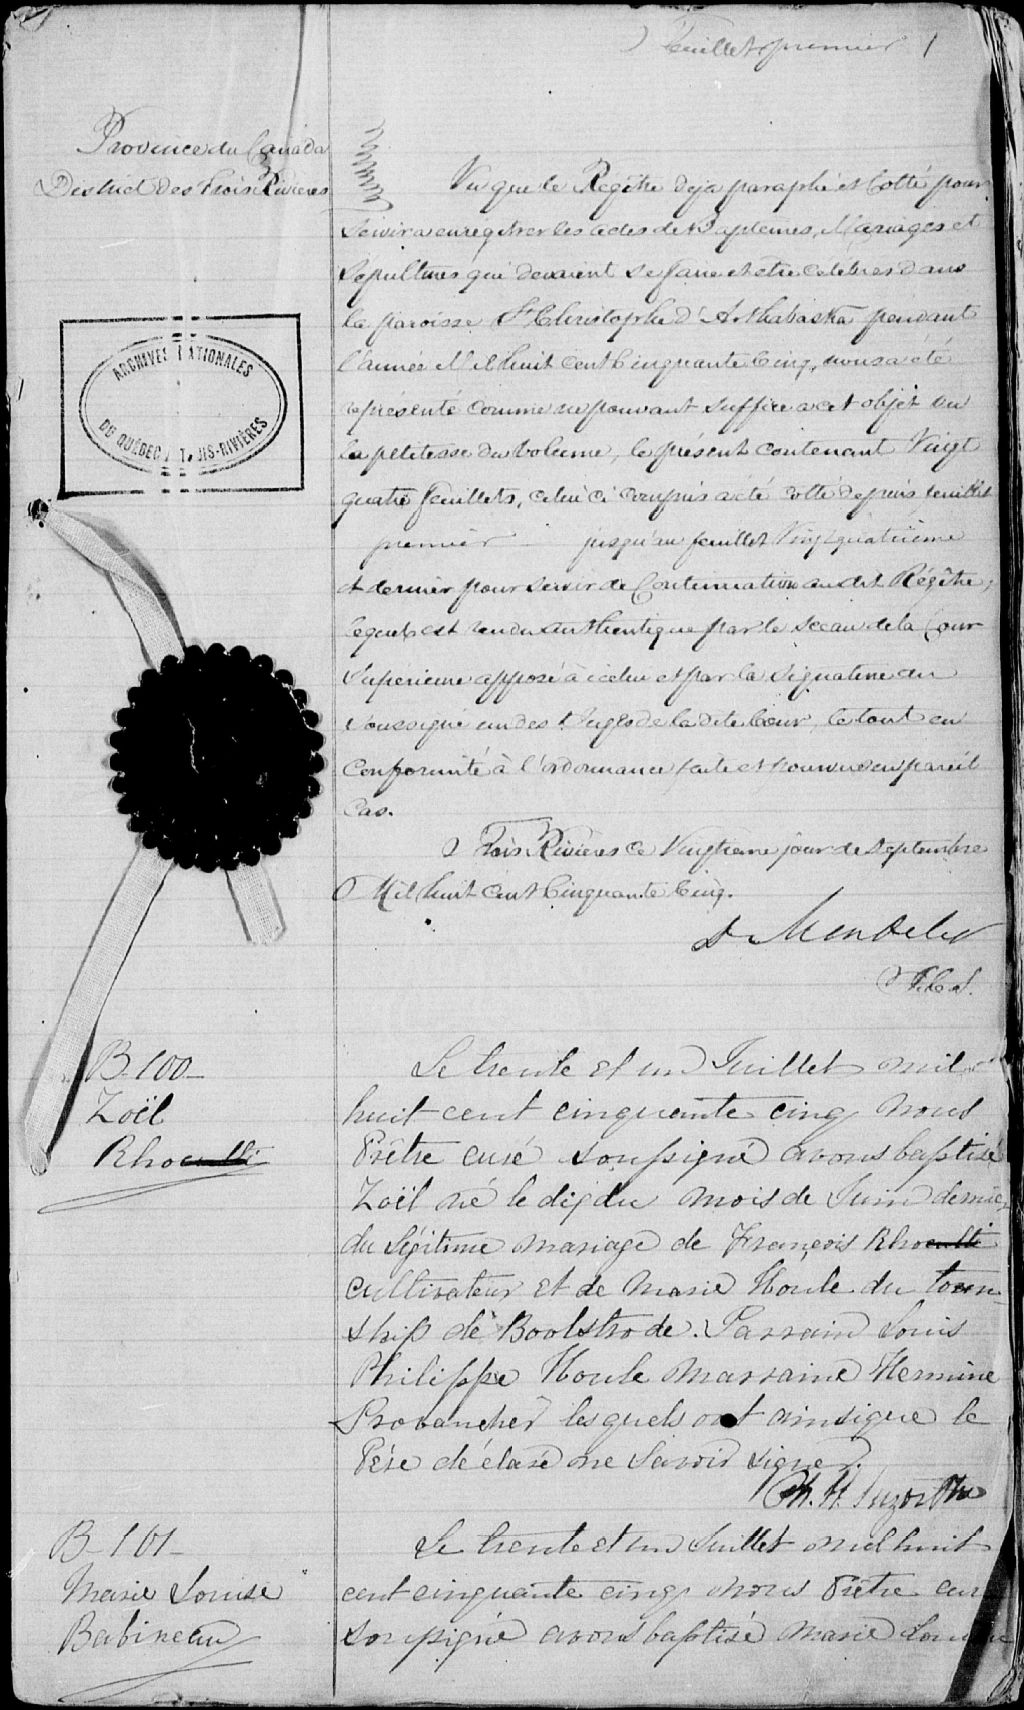 Feuillet premier 1
Province du Canada
District des Trois Rivieres
Vu que le Régître deja paraphé et Cotté pour
servir a enregîtrer les actes de Baptemes, Mariages et
Sepultures qui devaient se faire et etre celebres dans
la paroisse St Christophe d'Arthabaska pendant
l'année Mil huit cent Cinquante Cinq, nous a été
représenté comme ne pouvant suffire a cet objet vu
la petitesse du volume, le présent contenant Vingt
quatre feuillets, celui ci compris a été cotté depuis feuillet
premier jusqu'au feuillet Vingt quatrieme
et dernier pour servir de Continuation au dit Régître,
lequel est rendu authentique par le sceau de la Cour
Supérieure apposé à icelui et par la signature du
soussigné un des Juges de la dite Cour, le tout en
conformité à l'ordonnance faite et pourvue en pareil
Cas.
Trois Rivieres ce Vingtieme jour de Septembre
Mil huit cent Cinquante Cinq.
D. Mondelet
J.C.S.
ARCHIVES NATIONALES
DU QUÉBEC À TROIS-RIVIÈRES
B-100-
Zoël
Rho
Le trente et un Juillet mil
huit cent cinquante cinq nous
Prêtre curé soussigné avons baptisé
Zoël né le dix du mois de Juin dernier
du légitime mariage de François Rho
cultivateur et de Marie Houle du town
ship de Boolstrode. Parrain Louis
Philippe Houle Marraine Hermine
Provancher lesquels ont ainsi que le
Père déclaré ne savoir signer.
Ch. H. Suzor Ptre
B-101-
Marie Louise
Babineau
Le trente et un Juillet mil huit
cent cinquante cinq nous Prêtre curé
soussigné avons baptisé Marie Louise